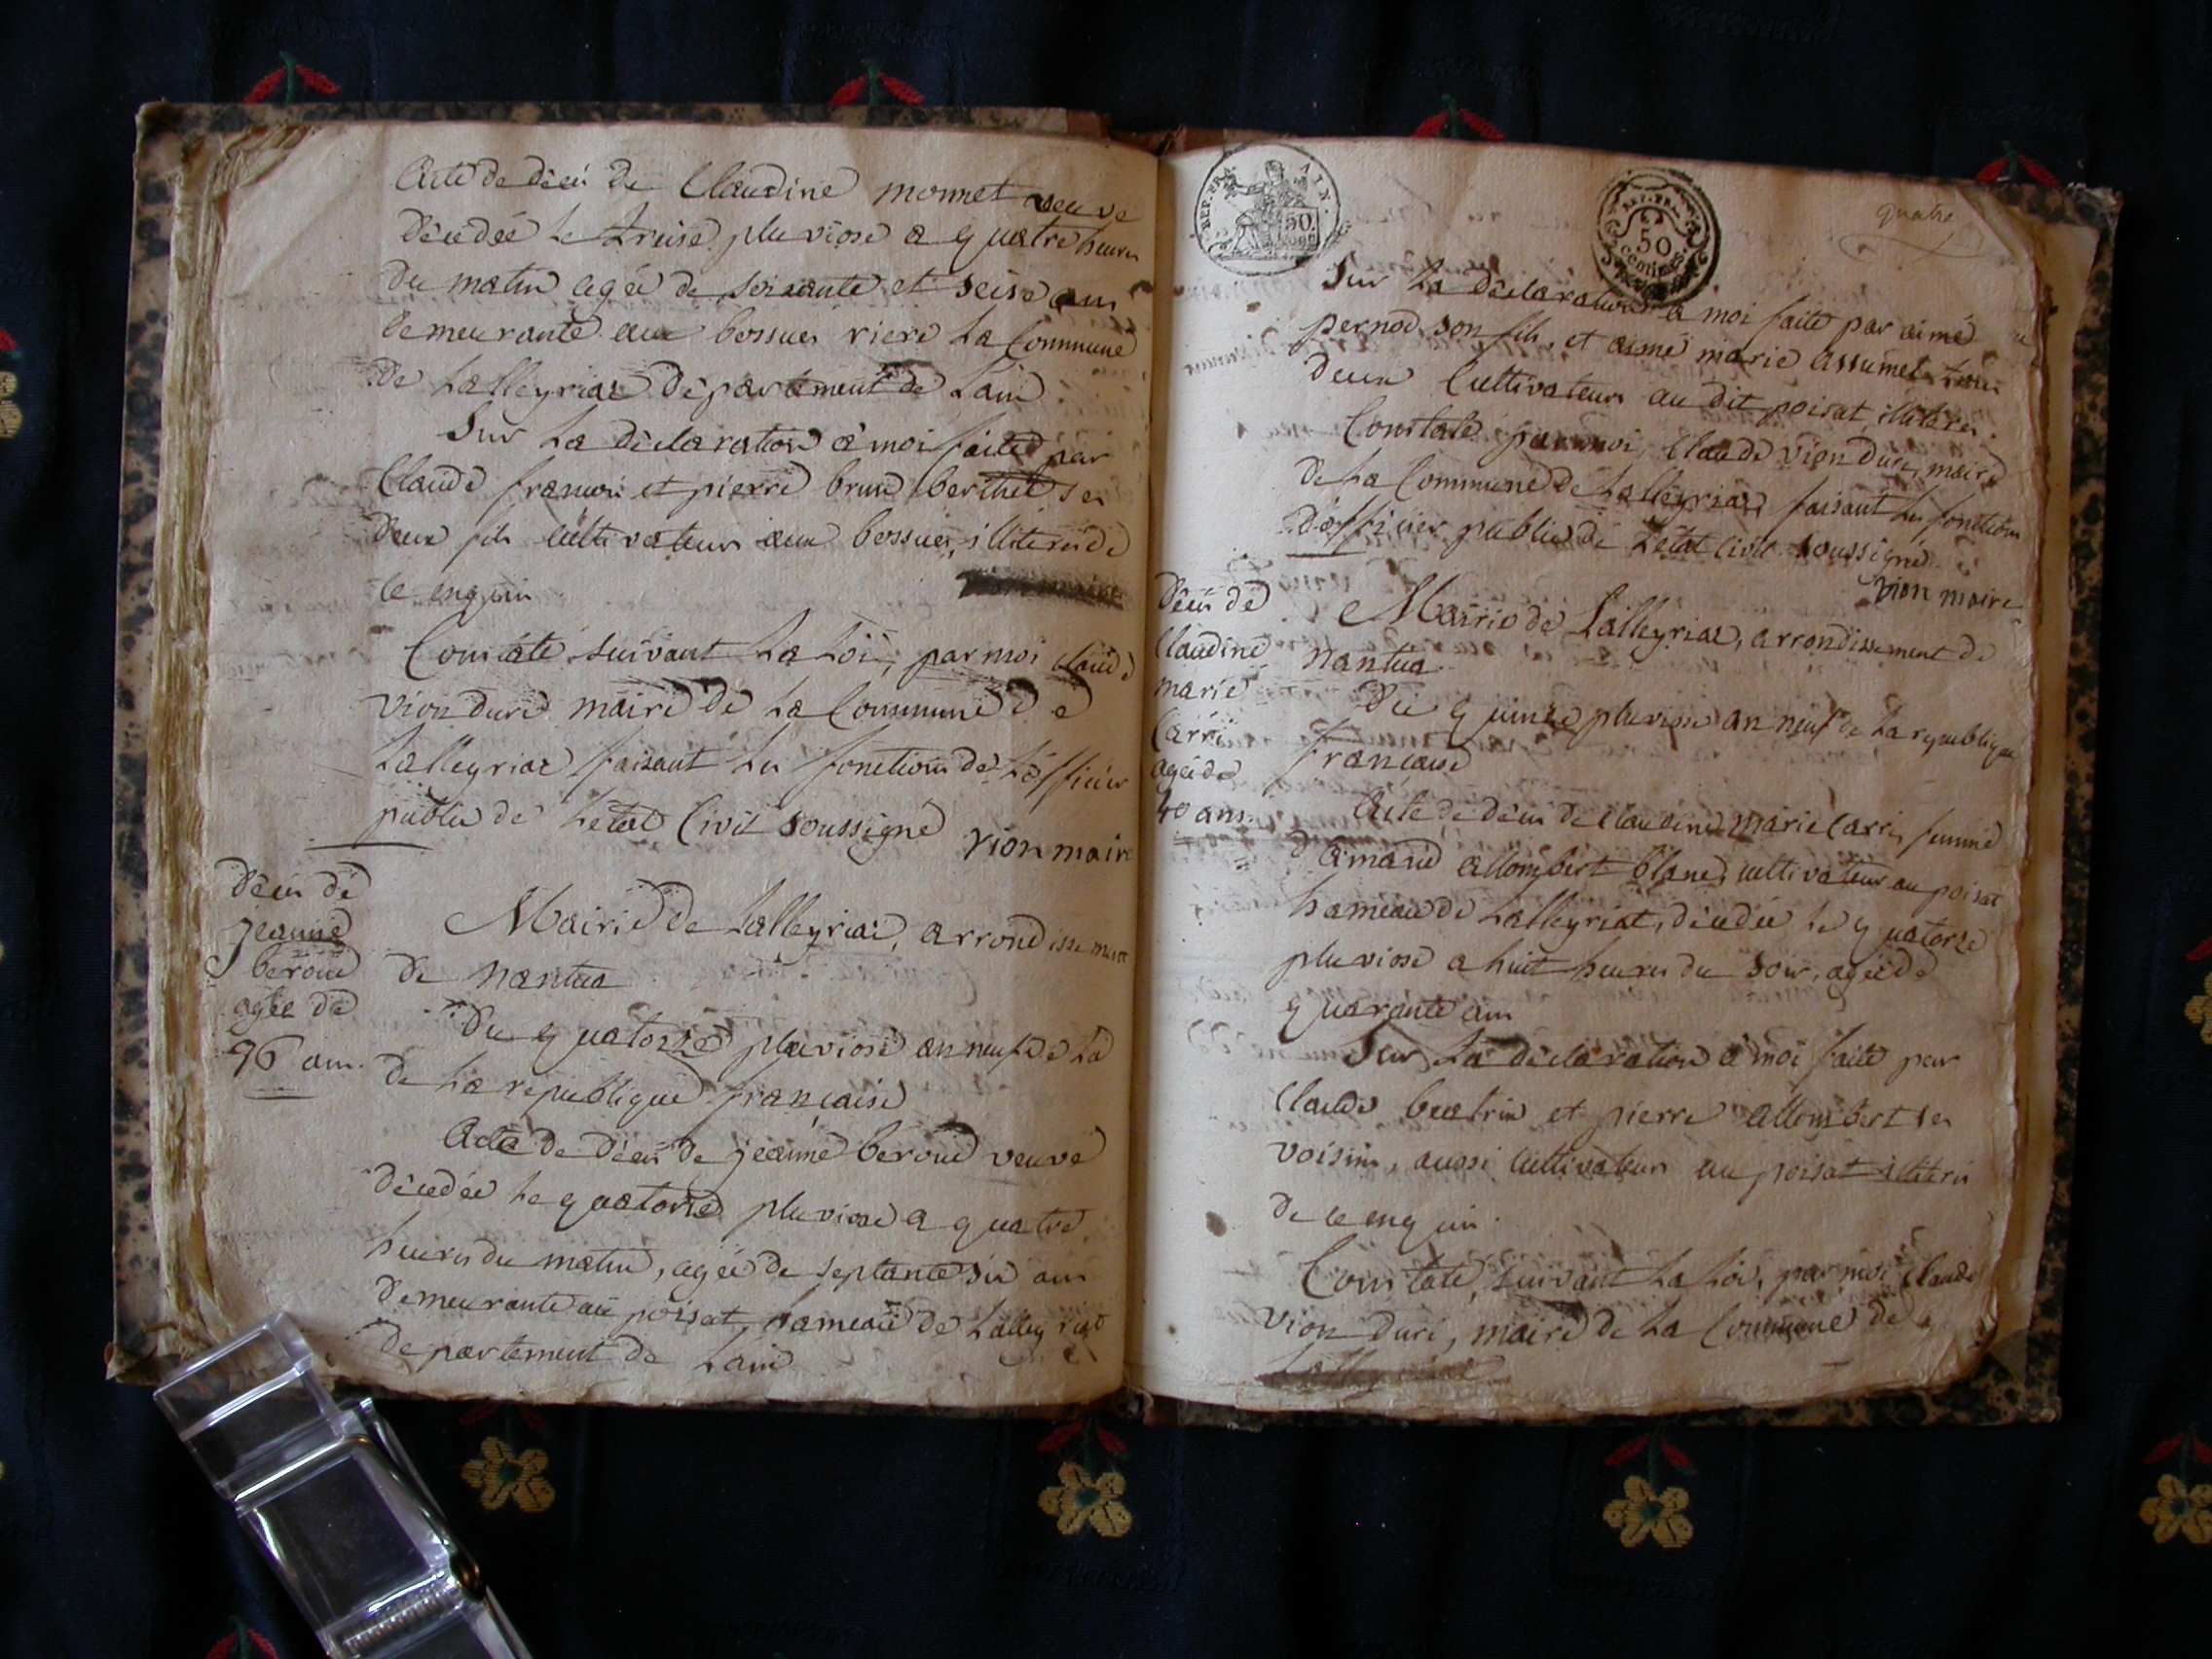 Acte de décés de Claudine monnet veuve
décédée le treise pluviose a quatre heures
du matin agée de soixante et seise ans
demeurante aux bossues riere la Commune
de Lalleyriat département de Lain
Sur La déclaration a moi faite par
Claude françois et pierre brun berthet ses
deux fils cultivateurs aux bossues, illiteres de
ce enquis
Constaté suivant La Loi, par moi Claude
vion duri maire de La Commune de
Lalleyriat faisant les fonctions de Lofficier
public de Letat Civil soussigné
vion maire
Décés de
jeanne
beroud
agée de
76 ans.
Mairie de Lalleyriat, arrondissement
de nantua
Du quatorze pluviose an neuf de La
de La republique francaise
Acte de décés de jeanne beroud veuve
décédée le quatorze pluviose a quatre
heures du matin, agée de septante six ans
demeurante au poisat hameau de Lalleyriat
departement de Lain
REP. FRA. AIN.
50.
REP. FRA.
50
centimes
quatre
Sur La déclaration a moi faite par aimé
pernod son fils, et aimé marie assumet tous
deux Cultivateurs au dit poisat, illiteres.
Constaté par moi Claude vion duri, maire
de La Commune de Lalleyriat faisant les fonctions
dofficier public de Letat civil soussigné
vion maire
Décés de
Claudine
marie
Carri
agée de
40 ans.
Mairie de Lalleyriat, arrondissement de
nantua
Du quinze pluviose an neuf de La republique
francaise
Acte de décés de Claudine marie Carri, femme
d'aimarie allombert blanc, cultivateur au poisat
hameau de Lalleyriat, décédée le quatorze
pluviose a huit heures du soir, agée de
quarante ans
Sur La déclaration a moi faite par
Claude beatrix et pierre allombert ses
voisins, aussi cultivateurs au poisat illiteres
de ce enquis.
Constaté, suivant La Loi, par moi Claude
vion duri, maire de La Commune de
Lalleyriat